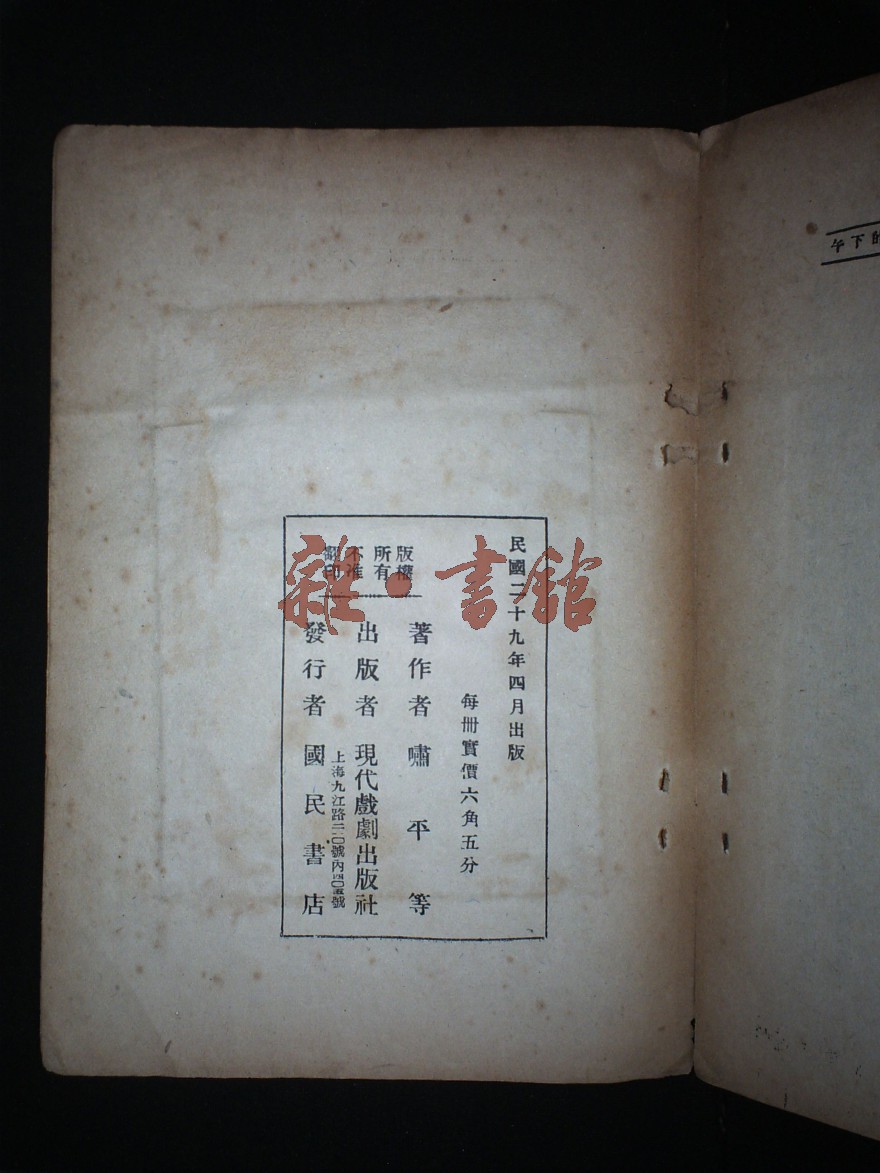 午下的
民國二十九年四月出版
每冊實價六角五分
版權所有不准翻印
著作者 嘯平等
出版者 現代戲劇出版社
上海九江路二一〇號內四〇五號
發行者 國民書店
雜·書館